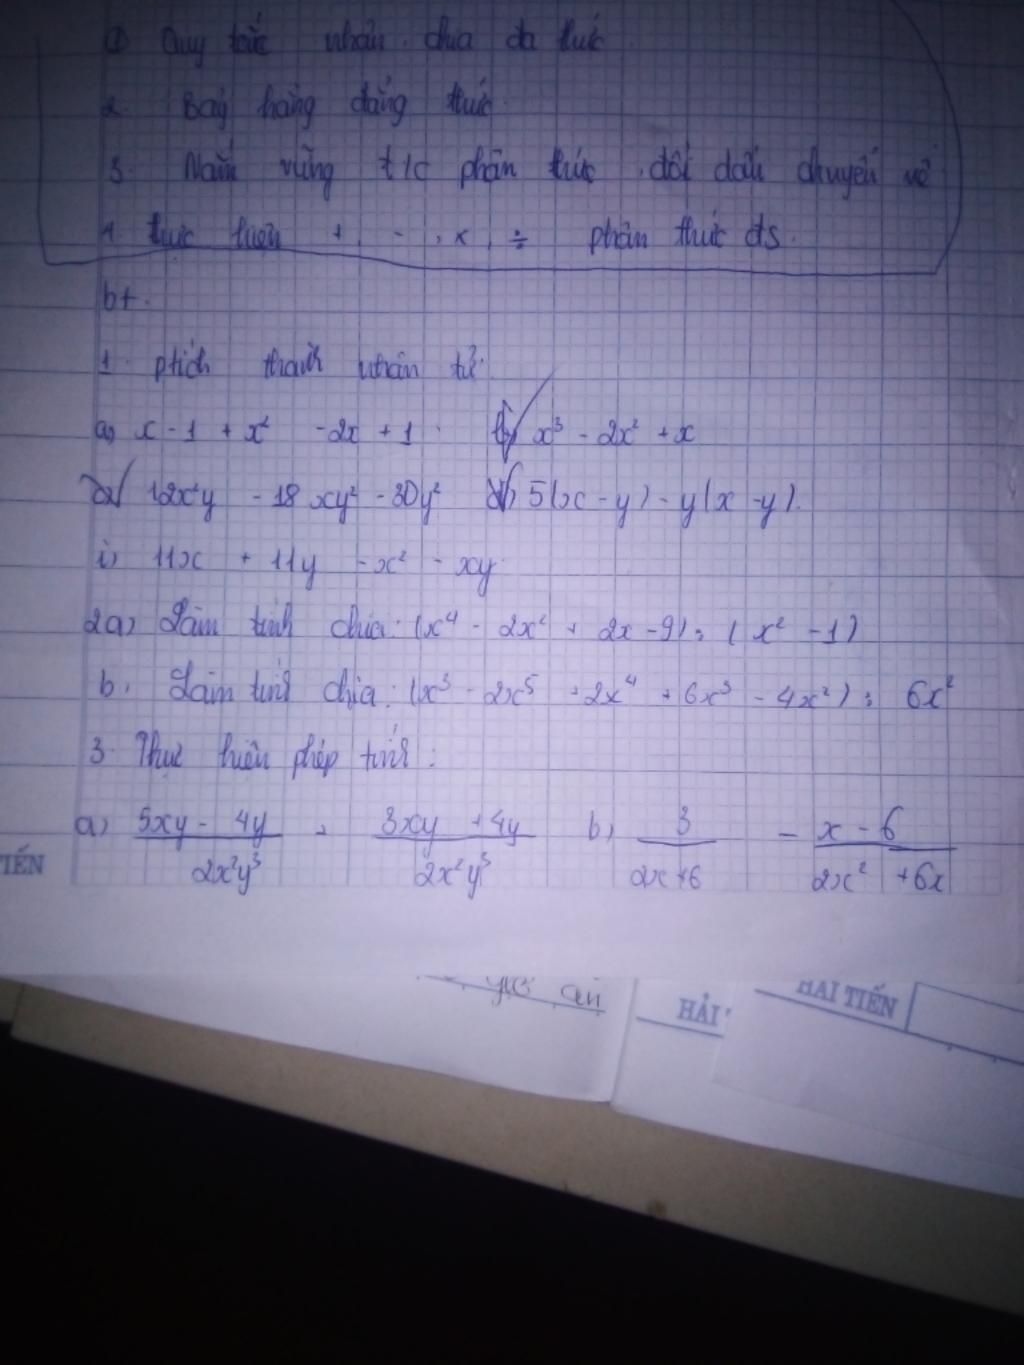 ① Quy tắc nhân. chia đa thức.
2. Bảy hằng đẳng thức.
3. Nắm vững t/c phân thức. đổi dấu chuyển vế
4. thực hiện +, -, x, ÷ phân thức đs.
bt.
1. ptích thành nhân tử.
a) x - 1 + x² - 2x + 1. x³ - 2x² + x
12x²y - 18xy² - 30y² 5(x - y) - y(x - y).
i) 11x + 11y - x² - xy
2a) Làm tính chia: (x⁴ - 2x² + 2x - 9) : (x² - 1)
b. Làm tính chia: (x³ - 2x⁵ + 2x⁴ + 6x³ - 4x²) : 6x²
3. Thực hiện phép tính:
a) (5xy - 4y)/(2x²y³) + (3xy + 4y)/(2x²y³) b) 3/(2x + 6) - (x - 6)/(2x² + 6x)
TIẾN
HẢI TIẾN
HẢI